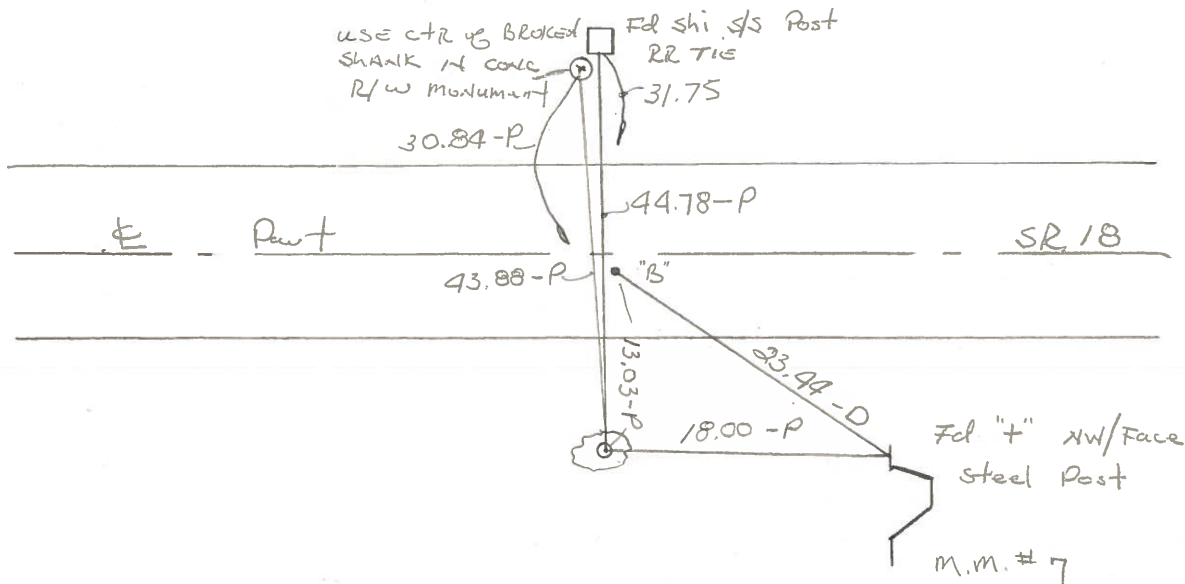 USE CtR of BROKEN
SHANK IN CONC
R/W MONUMENT
Fd Shi S/S Post
RR TIE
31.75
30.84-P
44.78-P
℄ Pavt
SR 18
43.88-P
"B"
13.03-P
23.44-D
18.00-P
Fd "+" NW/Face
Steel Post
M.M. # 7